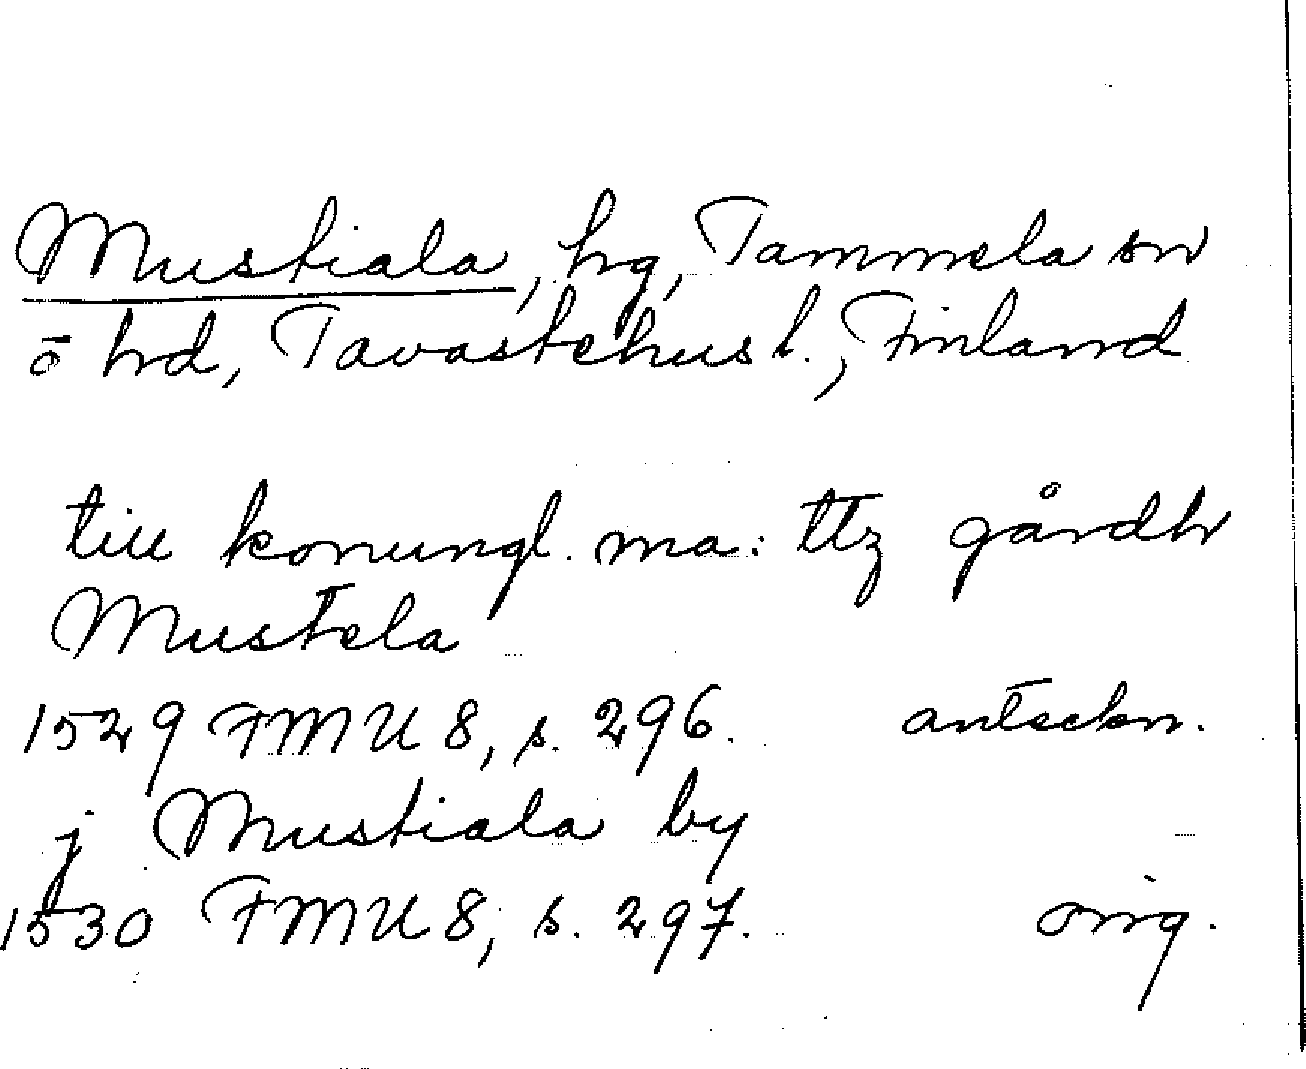 Mustiala, hg, Tammela sn
ō hrd, Tavastehus l., Finland
till konungl. ma: ttz gårdh
Mustela
1529 FMU 8, s. 296. anteckn.
j Mustiala by
1530 FMU 8, s. 297. orig.